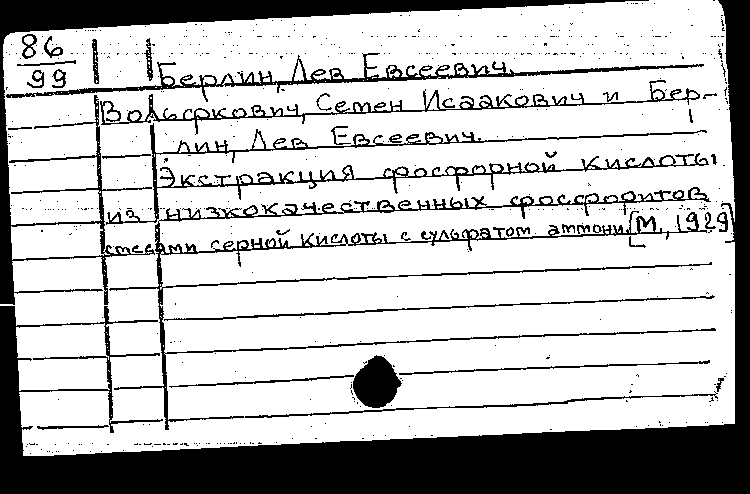 86
99
Берлин, Лев Евсеевич.
Вольфкович, Семен Исаакович и Бер-
лин, Лев Евсеевич.
Экстракция фосфорной кислоты
из низкокачественных фосфоритов
смесями серной кислоты с сульфатом аммони. [М., 1929]